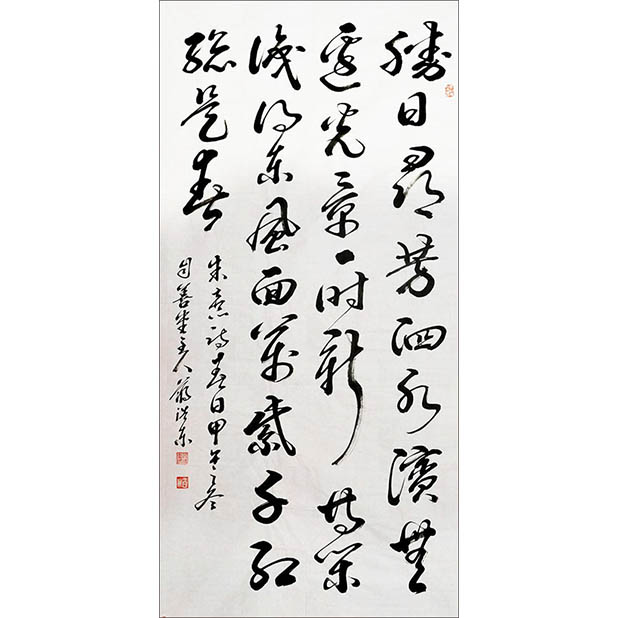 勝日尋芳泗水濱無
邊光景一時新等閒
識得東風面萬紫千紅
總是春
朱熹詩春日甲午之冬
善堂主人